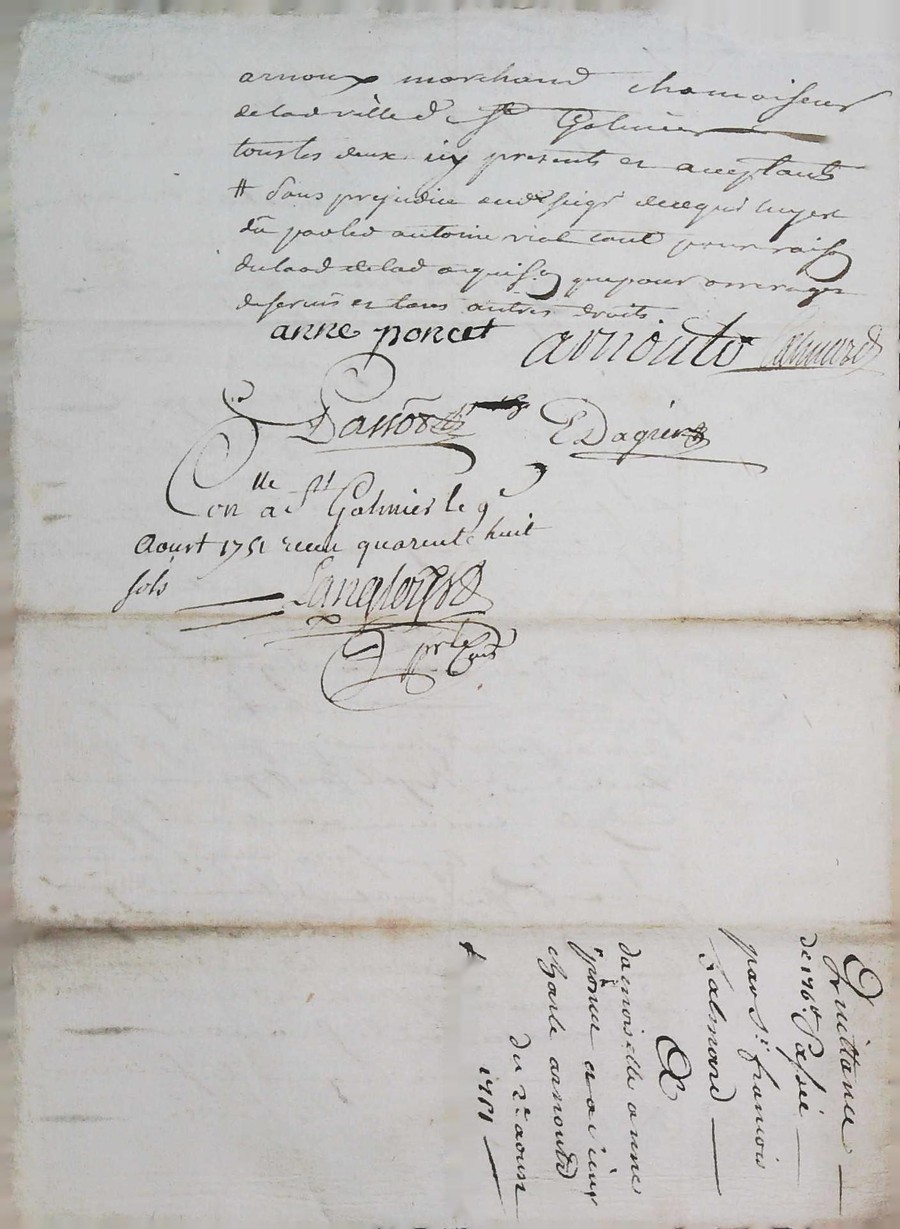 arnoux marchand chamoiseur
de lad ville de St Galmier
tous les deux icy presents et acceptants
# sans prejudice aud seigr de ce qui luy est
dû par led antoine vial tant pour raison
du laod de lad acquison que pour arrerages
de servis et tous autres droits
anne poncet arnould
E Dagier
Conlle a St Galmier le 9
Aoust 1751 receu quarente huit
sols Langlois
Quittance
de 176# Passée
par Sr francois
&
damoiselle anne
poncet a sieur
charle arnould
du 2e aoust
1751